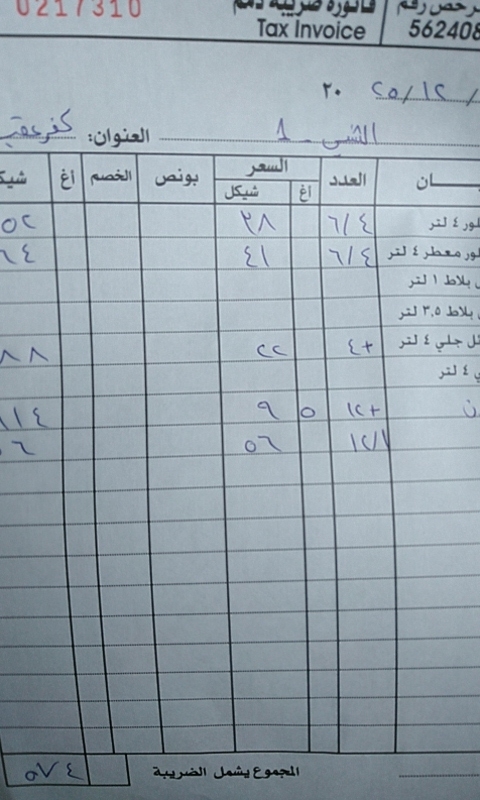 0217310 فاتورة ضريبية رقم
مرخص رقم
Tax Invoice 562408
٢٠ ٢٥/١٢/
العنوان: كفر عقب
السعر
العدد أغ شيكل بونص الخصم أغ شيك
٤ لتر ٦/٤ ٣٨ ٥٢
معطر ٤ لتر ٦/٤ ٤١ ٦٤
بلاط ١ لتر
بلاط ٣,٥ لتر
جلي ٤ لتر +٤ ٢٢ ٨٨
٤ لتر
+١٢ ٥ ٩ ١١٤
١٢/١ ٥٦ ٥٦
المجموع يشمل الضريبة ٥٧٤